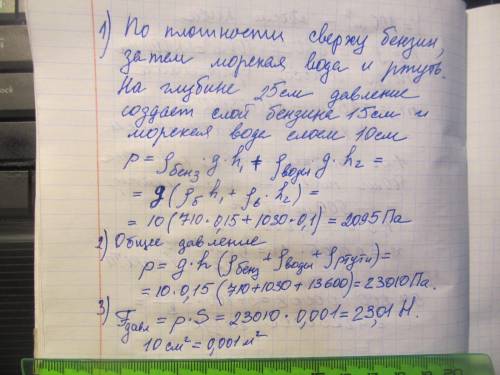 1) По плотности сверху бензин,
затем морская вода и ртуть.
На глубине 25см давление
создает слой бензина 15см и
морская вода слоем 10см
p = ρбенз·g·h₁ + ρводы·g·h₂ =
= g(ρб·h₁ + ρв·h₂) =
= 10(710·0,15 + 1030·0,1) = 2095 Па
2) Общее давление
p = g·h(ρбенз + ρводы + ρртути) =
= 10·0,15(710 + 1030 + 13600) = 23010 Па.
3) Fдавл = p·S = 23010·0,001 = 23,01 Н.
10 см² = 0,001 м²